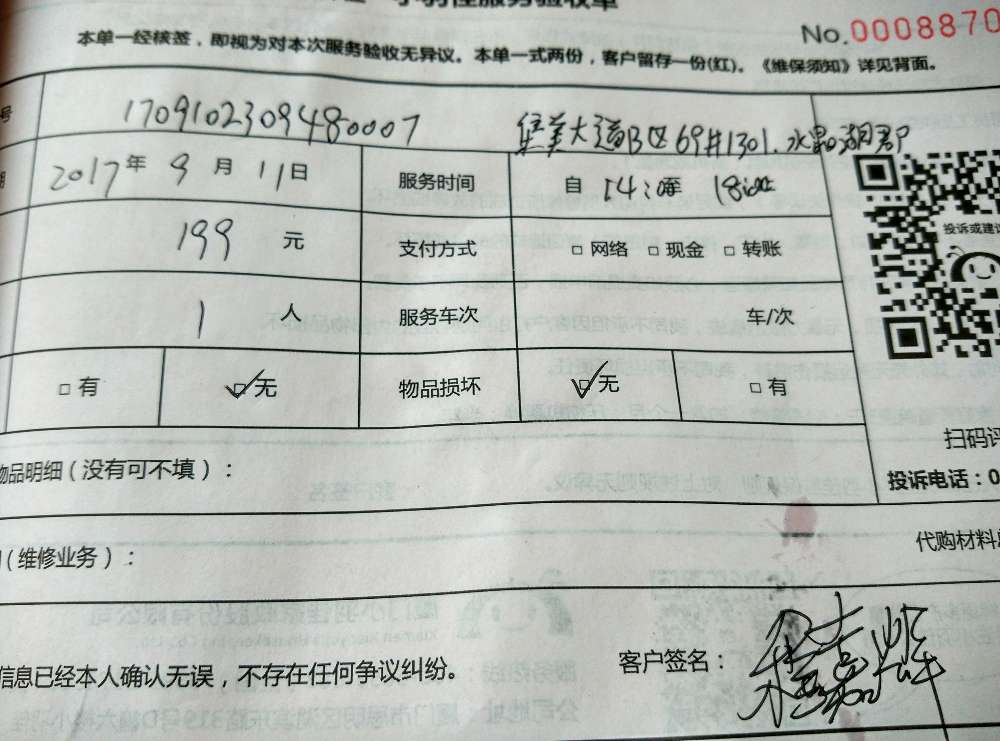 服务验收单
No.0008870
本单一经核签，即视为对本次服务验收无异议。本单一式两份，客户留存一份(红)。《维保须知》详见背面。
号 17091023094480007 大道B区69#1301.水晶湖郡
2017年9月11日 服务时间 自14:0至18:00止
199元 支付方式 □网络 □现金 □转账
投诉或建议
1人 服务车次 车/次
□有 ☑无 物品损坏 ☑无 □有
扫码评
物品明细（没有可不填）：
投诉电话：0
（维修业务）：
代购材料
信息已经本人确认无误，不存在任何争议纠纷。
客户签名：